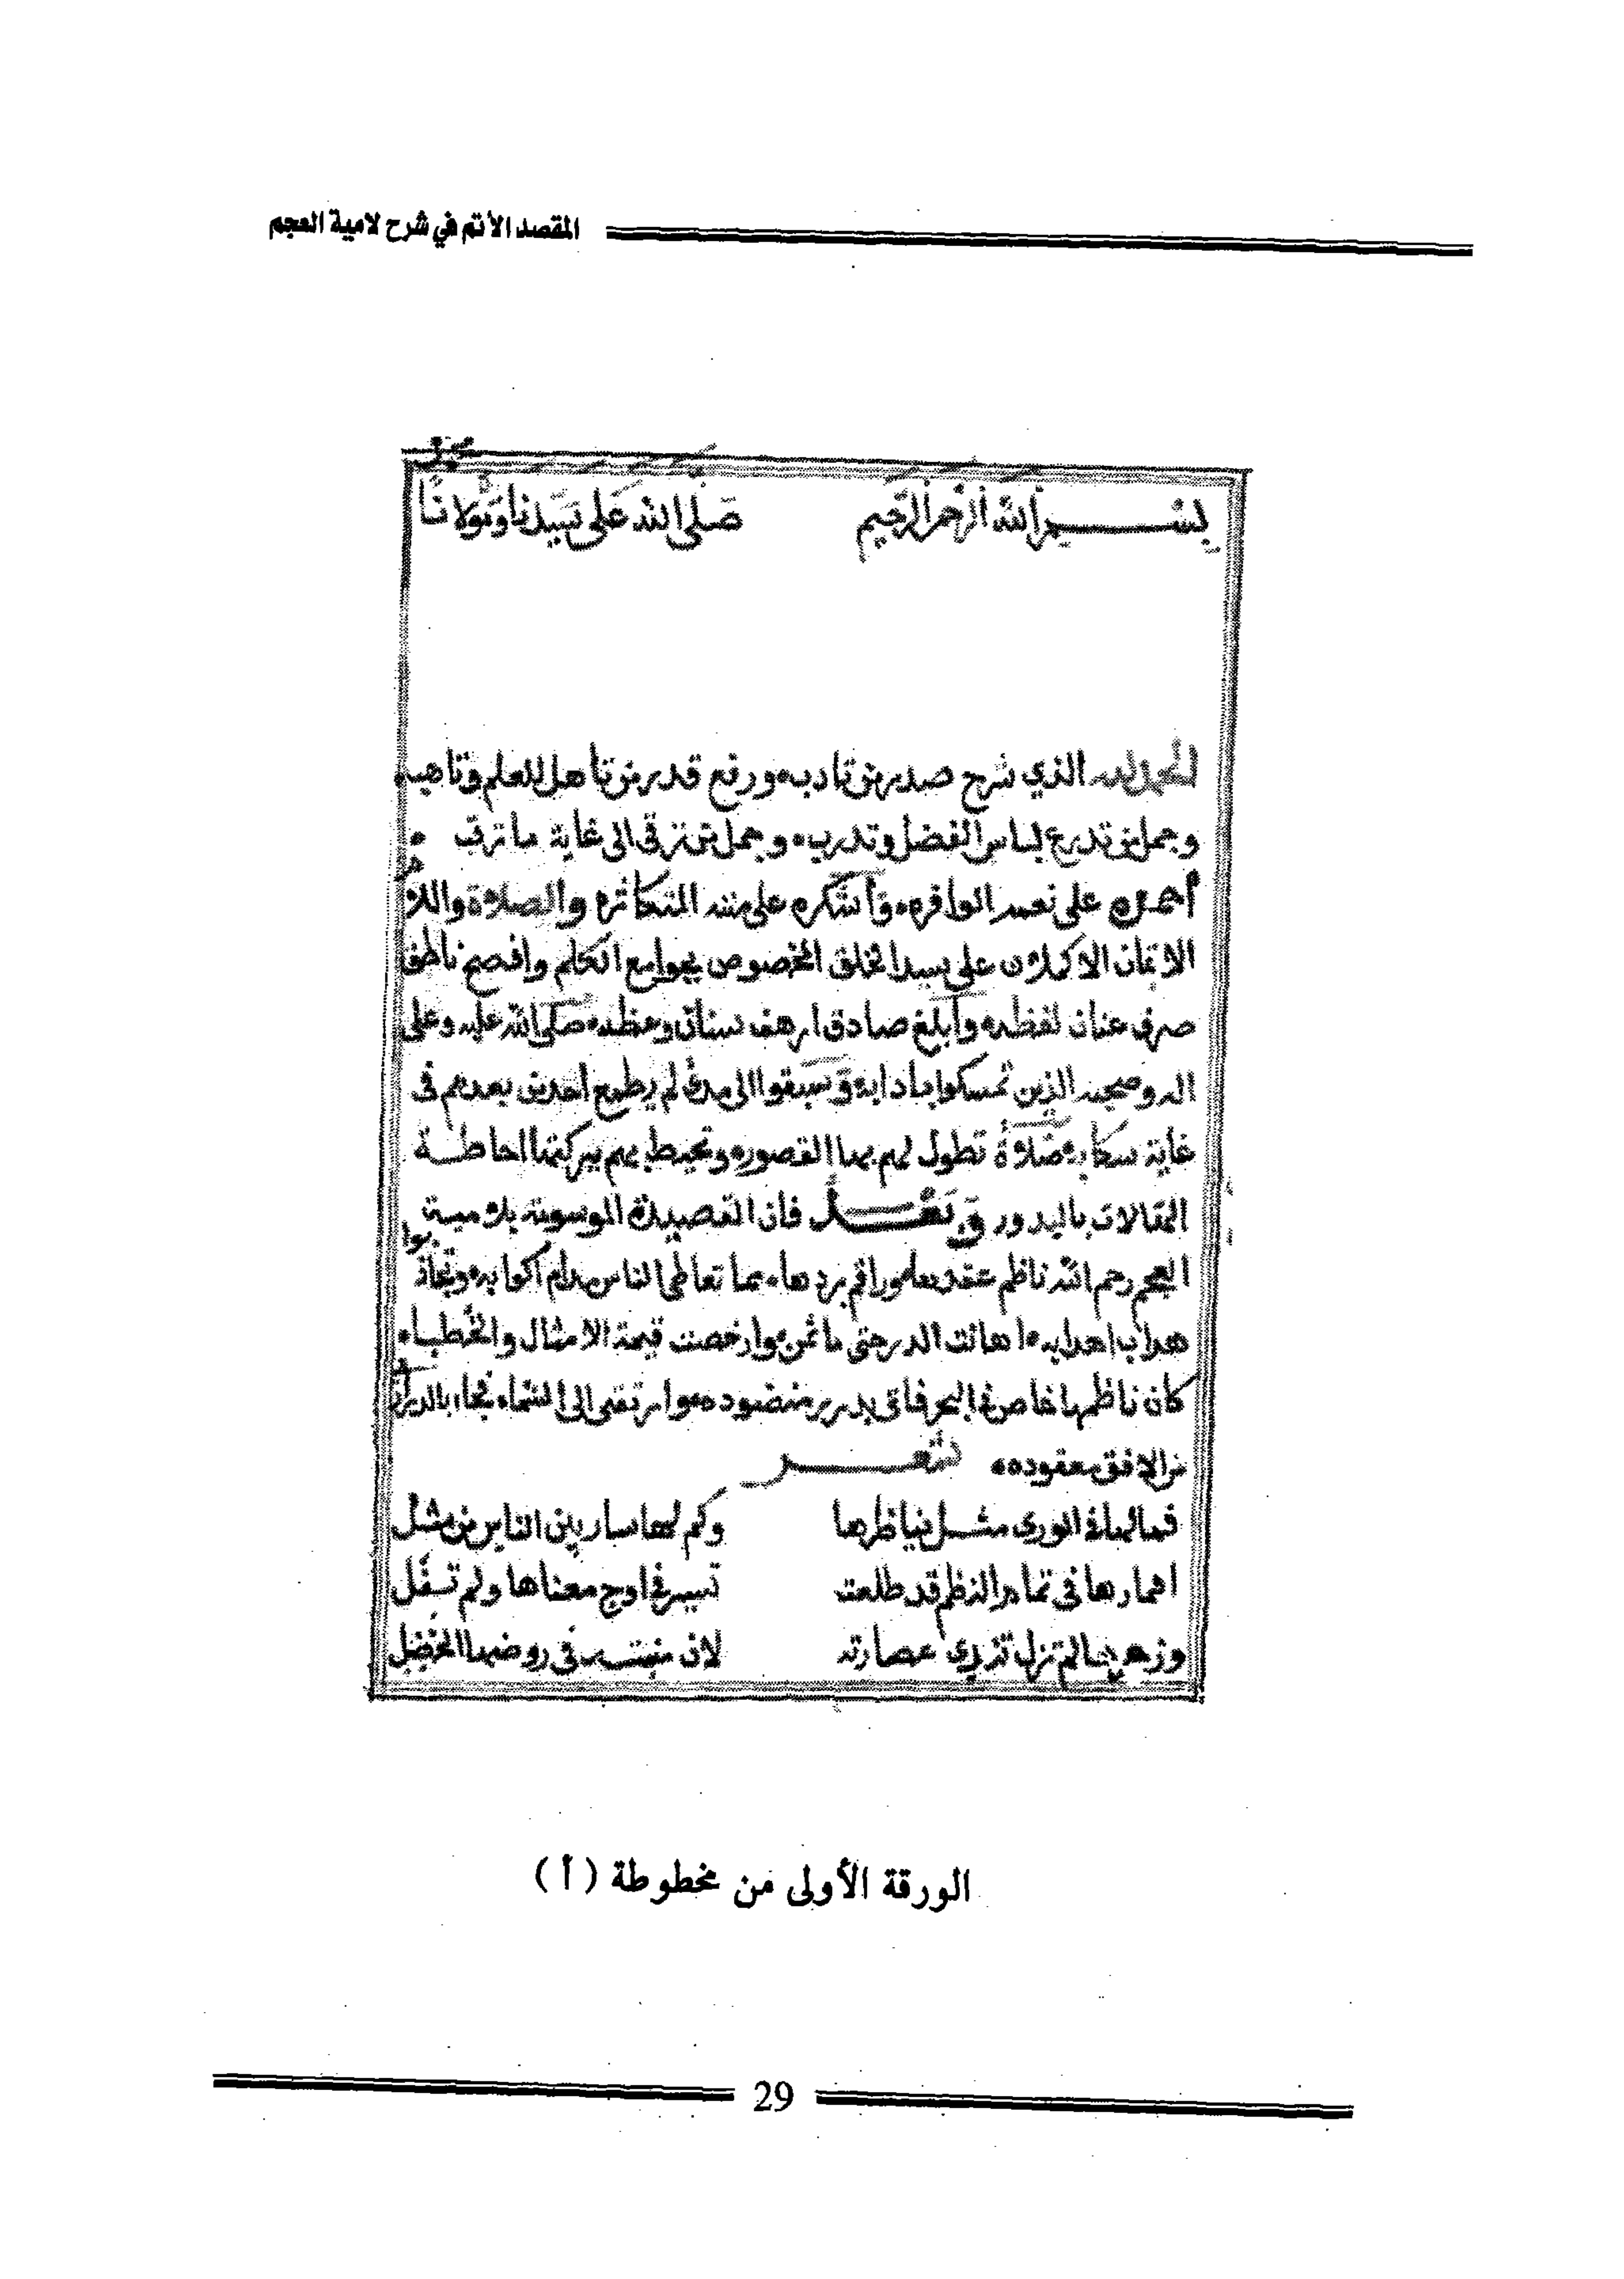 المقصد الأتم في شرح لامية العجم
محمد
بسم الله الرحمن الرحيم صلى الله على سيدنا ومولانا
الحمد لله الذي شرح صدر من تادب ورفع قدر من تاهل للعلم وتاهب
وجمل من تدرع لباس الفضل وتدرب وجمل من ترقى الى غاية ما ترقب
أحمده على نعمه الوافره وأشكره على مننه المتكاثره والصلاة والسلام
الاتمان الاكملان على سيد الخلق المخصوص بجوامع الكلم وافصح ناطق
صرف عنان لفظه وأبلغ صادق ارهف سنان وعظه صلى الله عليه وعلى
اله وصحبه الذين تمسكوا بادابه وسبقوا الى مدى لم يطمع أحد من بعدهم فى
غاية سكابه صلاة تطول لهم بها القصور وتحيط بهم ببركتها احاطة
الهالات بالبدور وبعد فان القصيدة الموسومة بلامية
العجم رحم الله ناظم عقدها وراقم بردها مما تعاطى الناس مدام اكوابه وتجاذبوا
هداب اهدابه اهانت الدر حتى ما له ثمن وارخصت قيمة الامثال والخطب
كان ناظمها غاص في البحر فاتى بدرر منضوده وارتقى الى السماء فجاء بالدراري
من الافق معقوده
شعر
فما لها في الورى مثل يناظرها وكم لها سار بين الناس من مثل
اقمارها فى تمام النظم قد طلعت تسير في اوج معناها ولم تفل
وزهرها لم تزل تندى عصارته لان منبته فى روضها الخضل
الورقة الأولى من مخطوطة (أ)
29